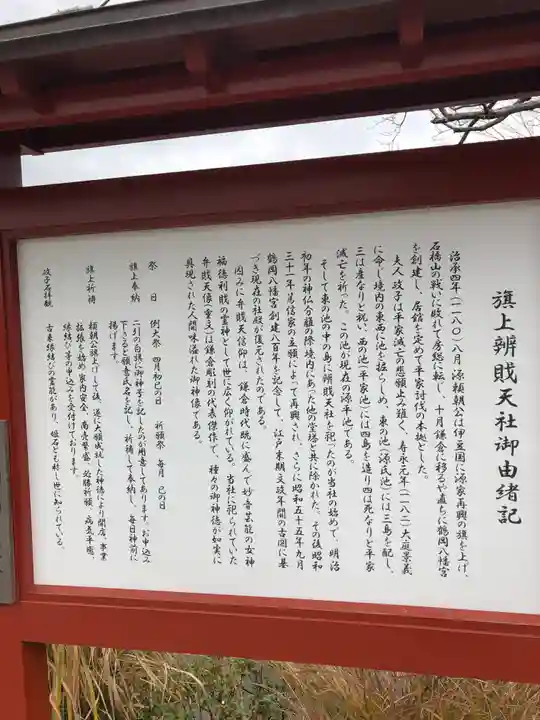 旗上辨財天社御由緒記
治承四年(一一八〇)八月 源頼朝公は伊豆国に源家再興の旗を上げ、
石橋山の戦いに敗れて房総に転し、十月鎌倉に移るや直ちに鶴岡八幡宮
を創建し、居館を定めて平家討伐の本拠とした。
夫人 政子は平家滅亡の悲願止み難く、寿永元年(一一八二)大庭景義
に命じ境内の東西に池を掘らしめ、東の池(源氏池)には三島を配し、
三は産なりと祝い、西の池(平家池)には四島を造り四は死なりと平家
滅亡を祈った。この池が現在の源平池である。
そして東の池の中の島に辨財天社を祀ったのが当社の始めで、明治
初年の神仏分離の際境内にあった他の堂塔と共に除かれた。その後昭和
三十一年篤信家の立願によって再興され、さらに昭和五十五年九月
鶴岡八幡宮創建八百年を記念して、江戸末期文政年間の古図に基
づき現在の社殿が復元されたのである。
因みに弁財天信仰は、鎌倉時代既に盛んで妙音芸能の女神
福徳利財の霊神として世に広く仰がれている。当社に祀られていた
弁財天像(重文)は鎌倉彫刻の代表傑作で、種々の御神徳が如実に
具現された人間味溢れた御神像である。
祭 日 例大祭 四月初巳の日 祈願祭 毎月 巳の日
旗上奉納 二引の白旗に御神号を記したのが用意してあります。お申込み
下さると願意氏名を記し、祈祷して奉納し、毎日神前に
揚げます。
旗上祈祷 頼朝公旗上げして後、遂に大願成就した神徳により開店、事業
拡張を始め、家内安全、商売繁盛、必勝祈願、病気平癒、
縁結び等の申込みを受付けております。
政子石拝観 古来縁結びの霊能があり、姫石とも称し世に知られている。